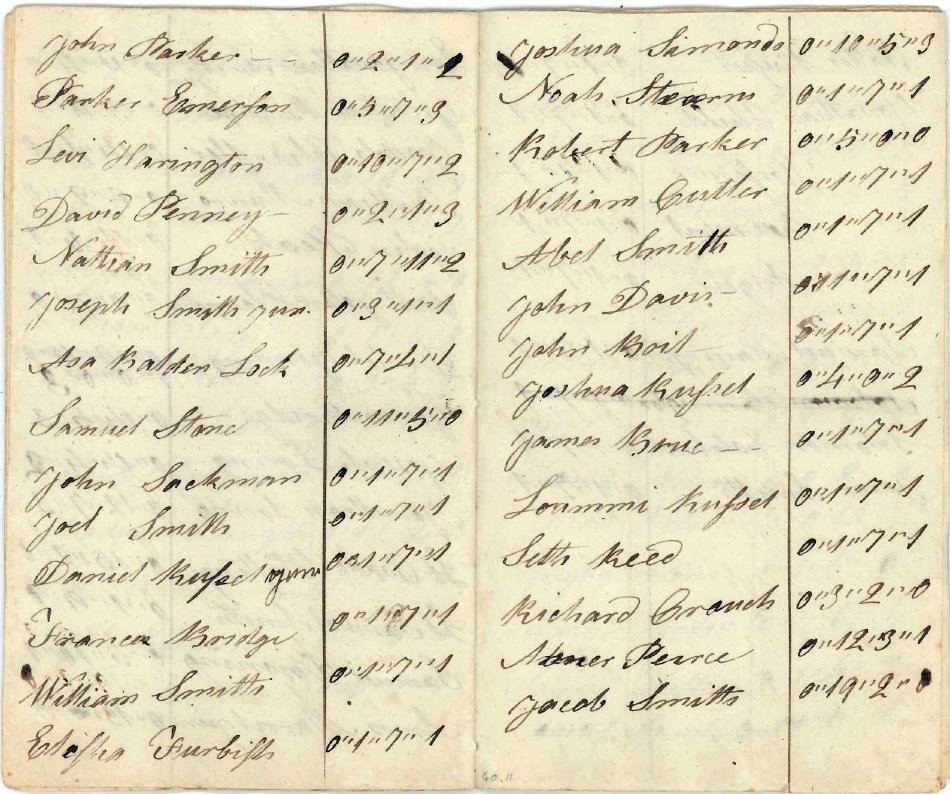 John Parker — — 0"2"1"2
Parker Emerson 0"5"7"3
Levi Harington 0"10"7"2
David Penney — 0"2"1"3
Nathan Smith 0"7"11"2
Joseph Smith jun. 0"3"1"1
Asa Balden Lock 0"7"4"1
Samuel Stone 0"11"5"0
John Lockman 0"1"7"1
Joel Smith 0"1"7"1
Daniel Russel junr 0"1"7"1
Frances Bridge 0"1"7"1
William Smith 0"1"7"1
Elisha Furbish 0"1"7"1
Joshua Simonds 0"10"5"3
Noah Stearns 0"1"7"1
Robert Parker 0"5"0"0
William Cutler 0"1"7"1
Abel Smith 0"1"7"1
John Davis — 0"1"7"1
John Boit — 0"1"7"1
Joshua Russel 0"4"0"2
James Bruc — — 0"1"7"1
Loummi Russel 0"1"7"1
Seth Reed 0"1"7"1
Richard Crouch 0"3"2"0
Abner Peirce 0"12"3"1
Jacob Smith 0"19"2"0
60.11